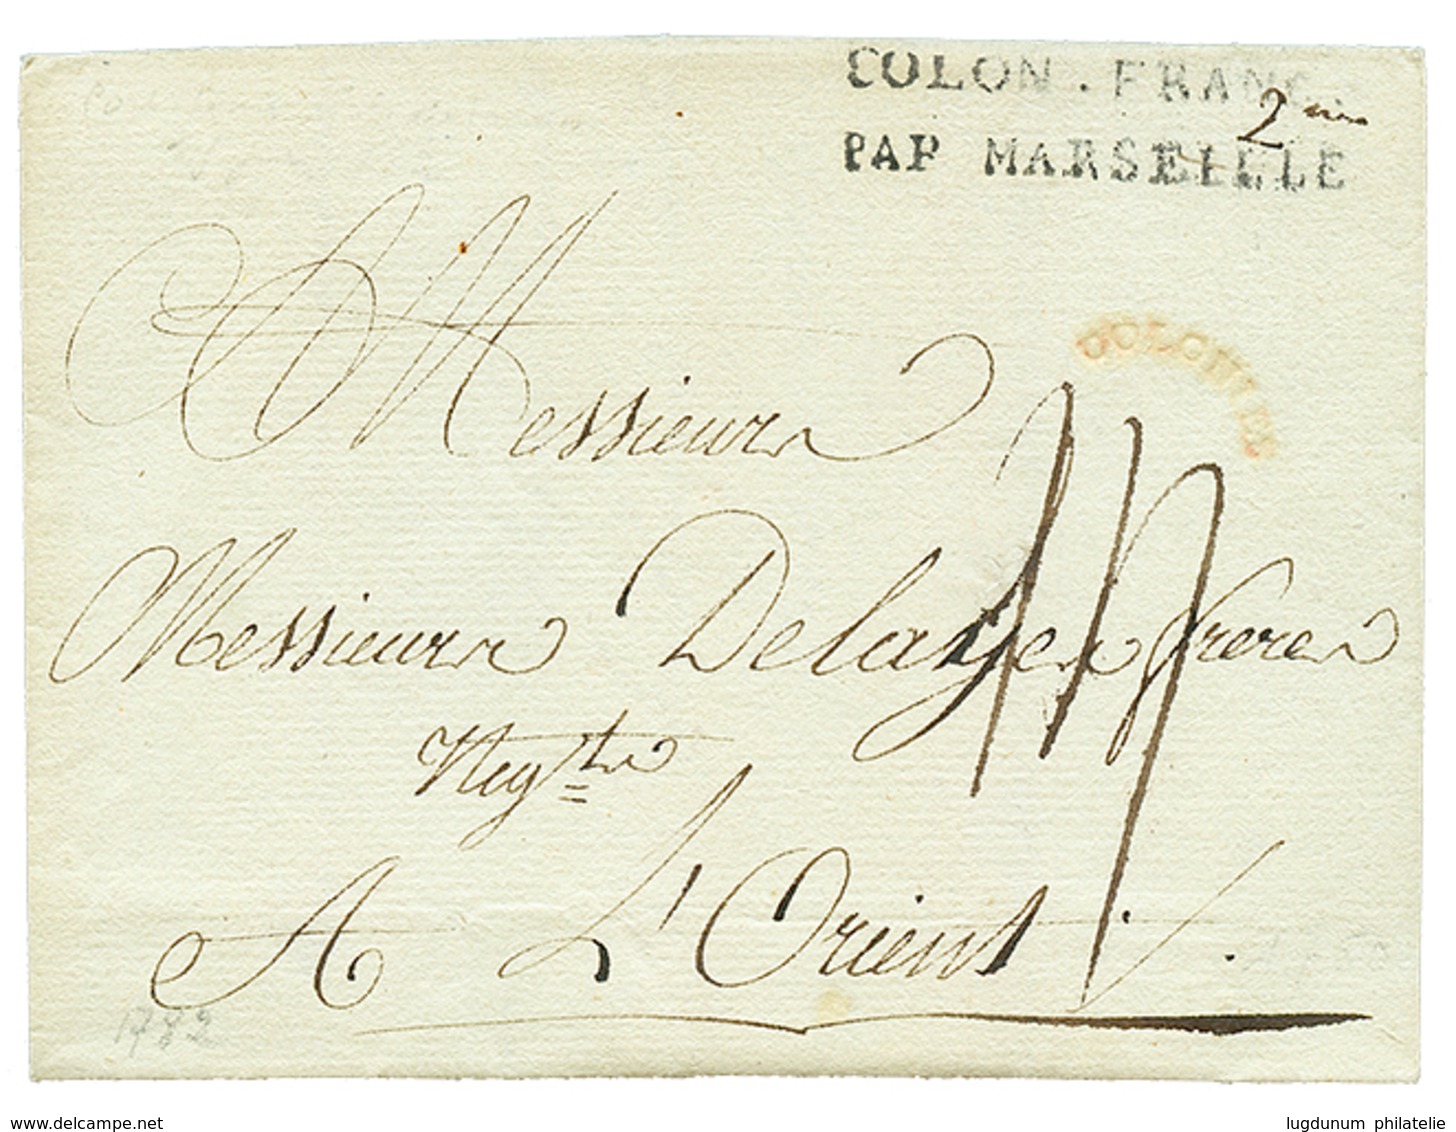 COLON. FRANC.
2
PAR MARSEILLE
COLONIES
Messieurs
Messieurs Delaye freres
Neg.ts
A L'Orient
1782
www.delcampe.net
lugdunum philatelie